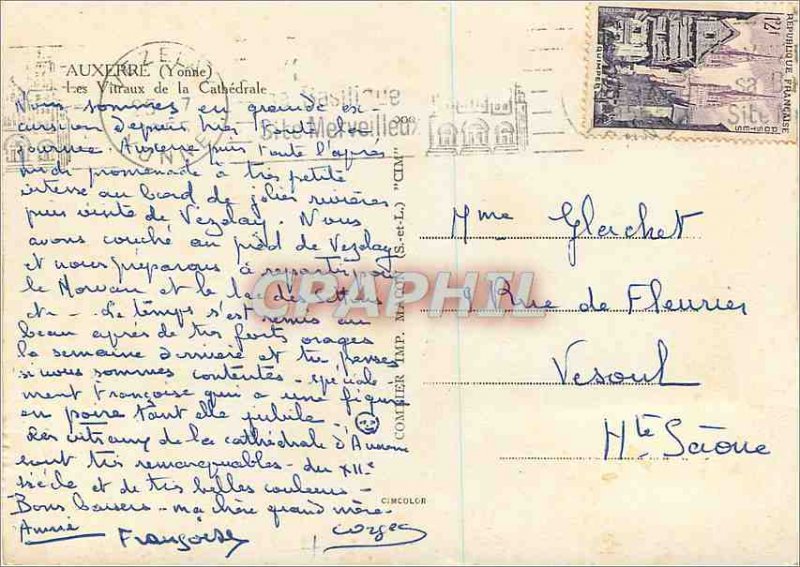 AUXERRE (Yonne)
Les Vitraux de la Cathédrale
Nous sommes en grande ex-
cursion depuis hier
journée Auxerre puis toute l'après
midi promenade à très petite
vitesse au bord de jolies rivières
puis visite de Vézelay. Nous
avons couché au pied de Vézelay
et nous préparons à repartir par
le Morvan et le lac des Settons
etc - Le temps s'est remis au
beau après de très forts orages
la semaine dernière et tu penses
si nous sommes contentes - spéciale
ment Françoise qui a une figure
en poire tant elle jubile -
Les vitraux de la cathédrale d'Auxerre
sont très remarquables - du XIIe
siècle et de très belles couleurs -
Bons baisers - ma chère grand mère -
Annie Françoise
COMBIER IMP. MACON (S.-et-L.) "CIM"
CIMCOLOR
VEZELAY
YONNE
sa Basilique
Site Merveilleux
sa
Site
RÉPUBLIQUE FRANÇAISE
12F
POSTES
QUIMPER
Mme Glachet
9 Rue de Fleurier
Vesoul
Hte Saône
CPARPHIL